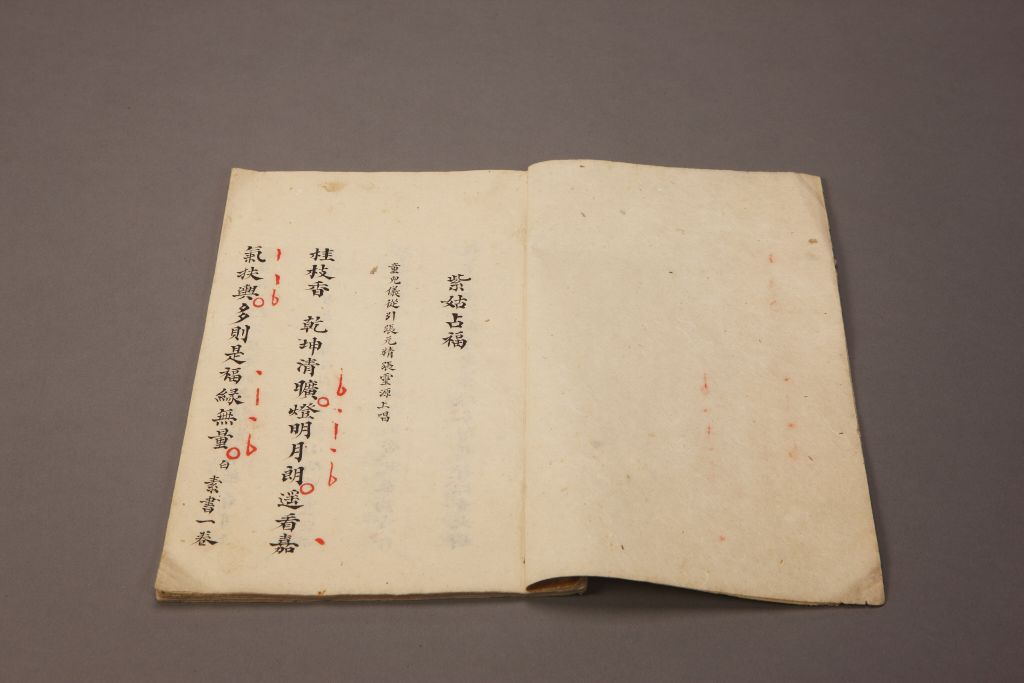 紫姑占福
童兒儀從引張元精張靈源上唱
桂枝香 乾坤清曠燈明月朗遥看嘉
氣扶輿多則是福緣無量 白 素書一卷